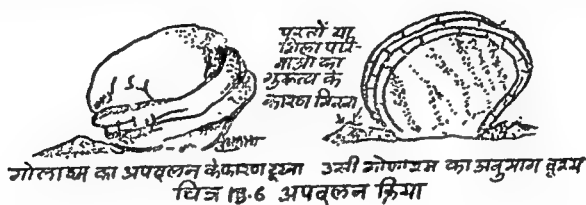 परतों या
शिला परि-
माओं का
गुरुत्व के
कारण गिरना
गोलाश्म का अपदलन के कारण टूटना उसी गोलाश्म का अनुभाग दृश्य
चित्र 13.6 अपदलन क्रिया